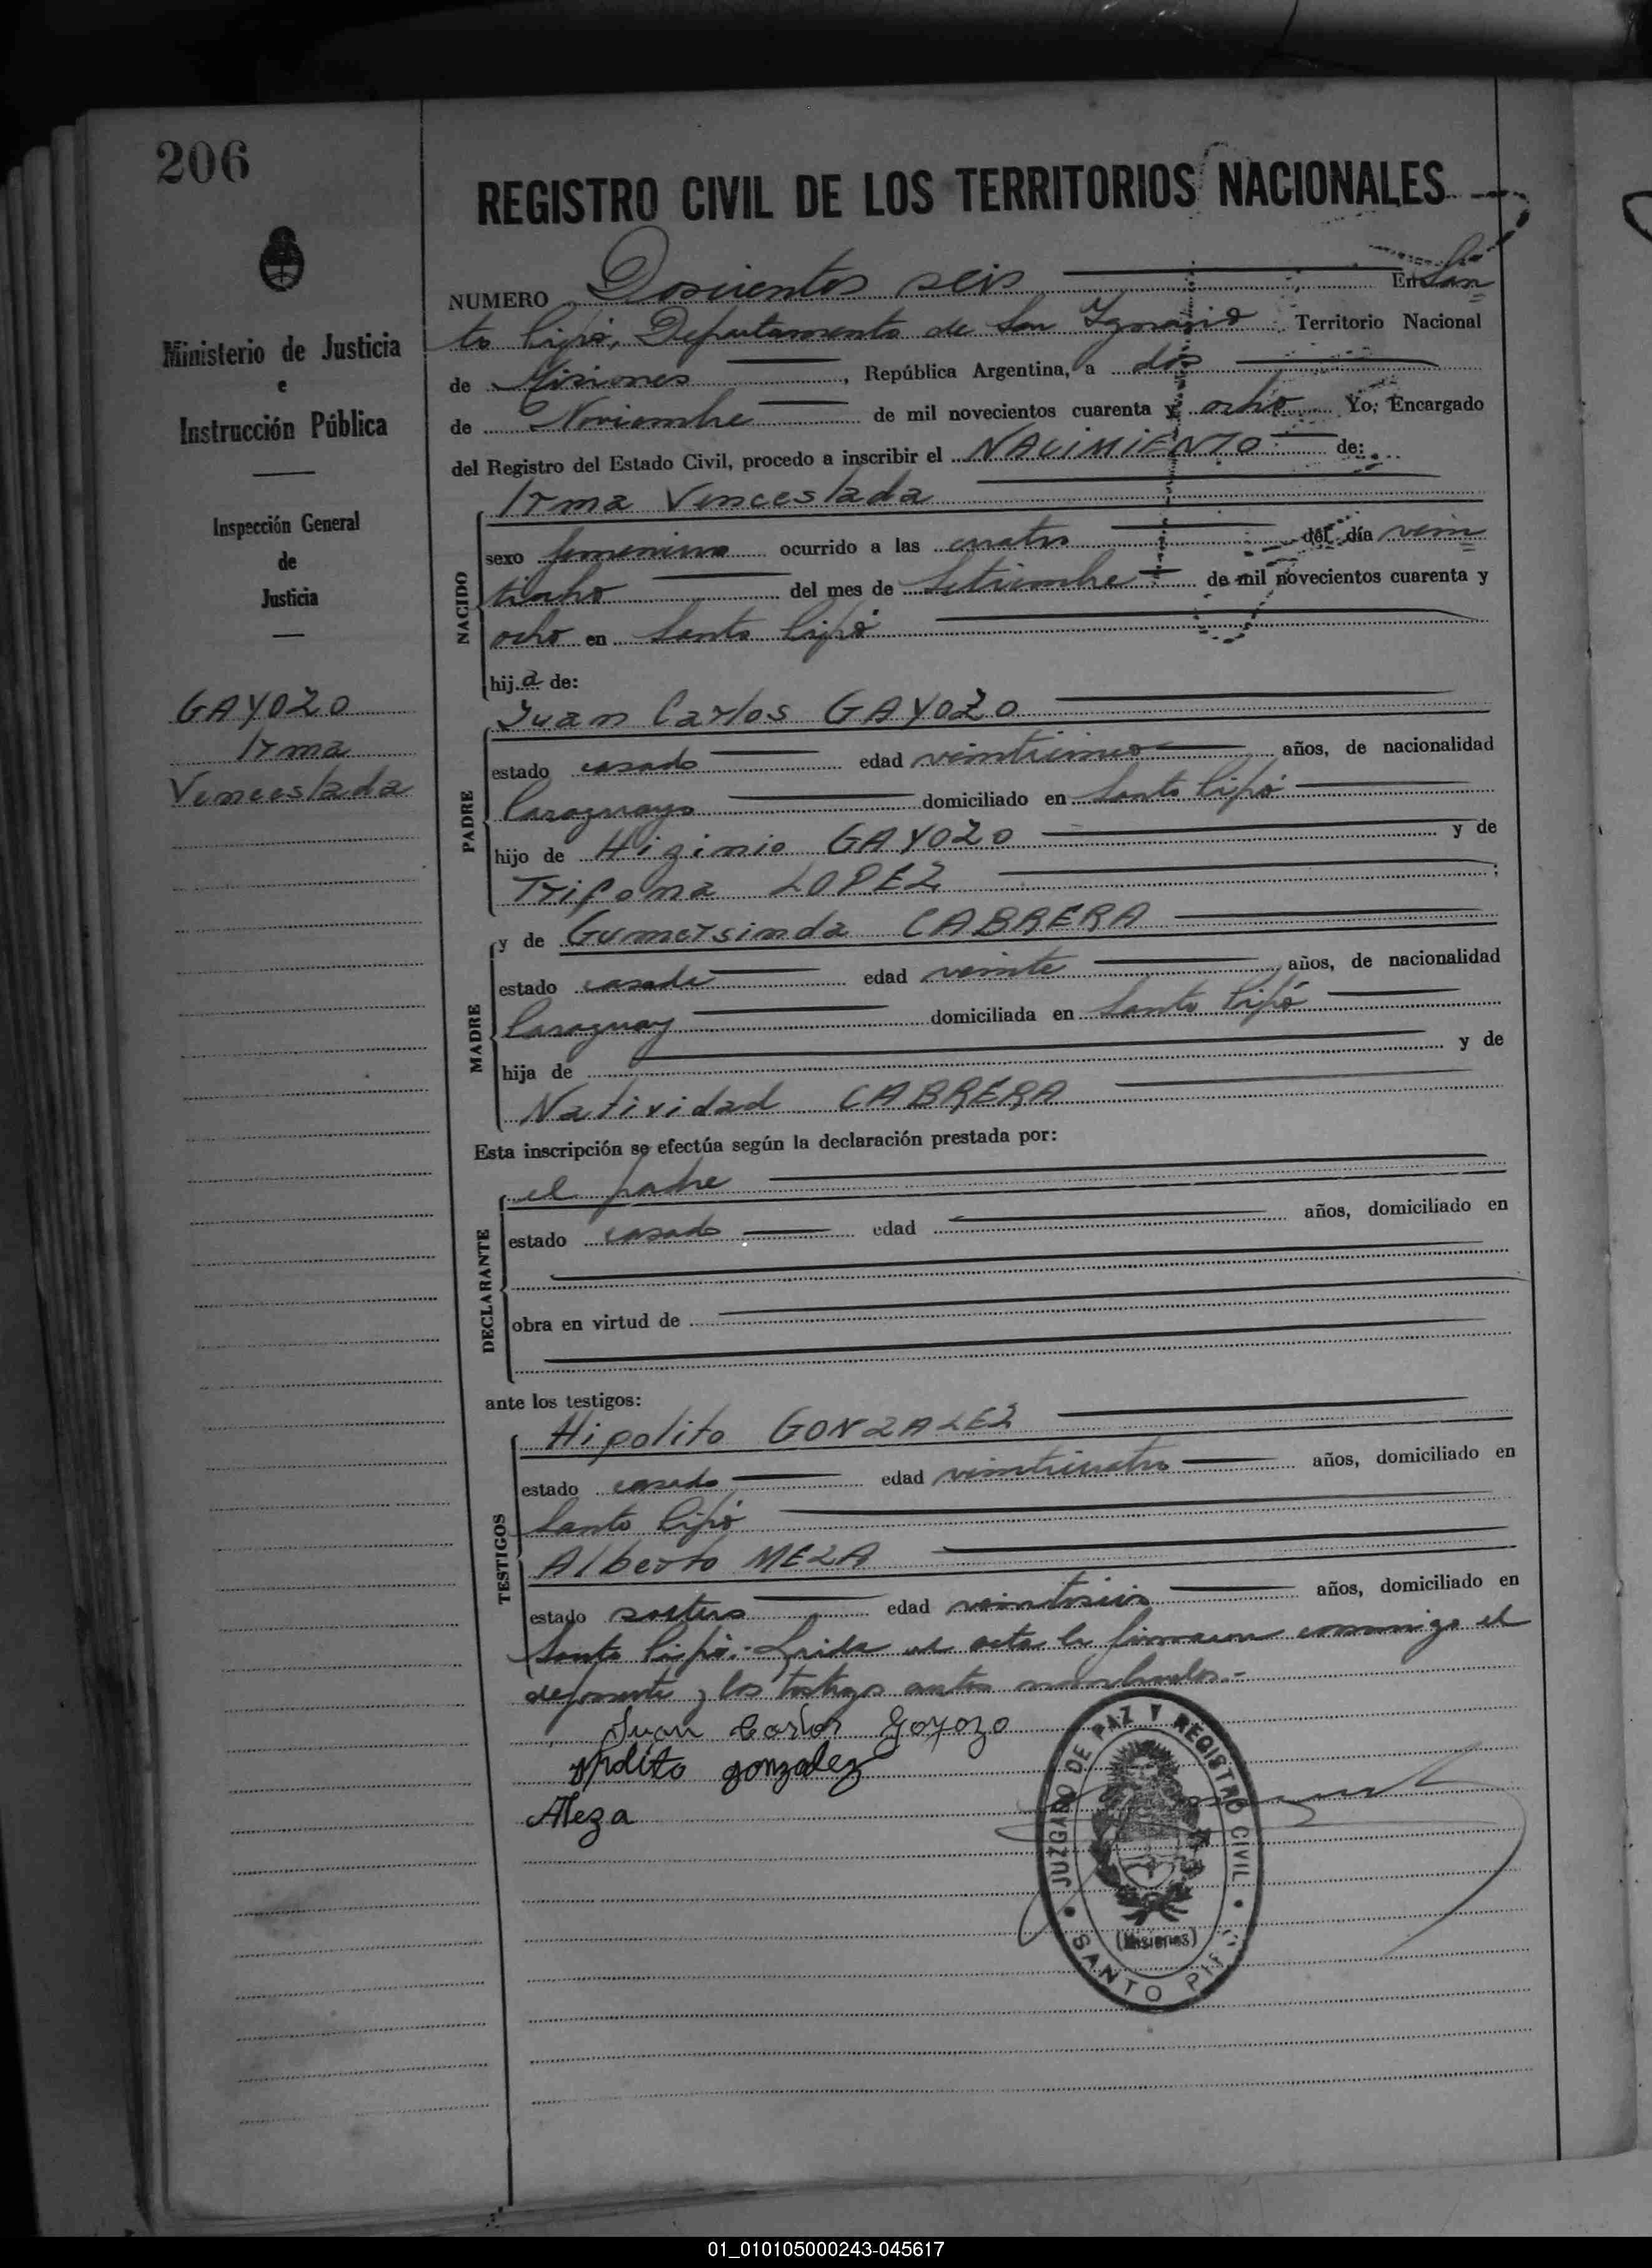 206
REGISTRO CIVIL DE LOS TERRITORIOS NACIONALES
NUMERO Dosientos seis En San
to Pipó, Departamento de San Ignacio Territorio Nacional
de Misiones, República Argentina, a dós
de Noviembre de mil novecientos cuarenta y ocho Yo, Encargado
del Registro del Estado Civil, procedo a inscribir el NACIMIENTO de:
Irma Venceslada
NACIDO
sexo femenino ocurrido a las cuatro del día vein
tiocho del mes de Setiembre de mil novecientos cuarenta y
ocho en Santo Pipó
hija de:
Juan Carlos GAYOZO
PADRE
estado casado edad veinticinco años, de nacionalidad
Paraguayo domiciliado en Santo Pipó
hijo de Higinio GAYOZO y de
Trifona LOPEZ;
y de Gumersinda CABRERA
MADRE
estado casada edad veinte años, de nacionalidad
Paraguay domiciliada en Santo Pipó
hija de y de
Natividad CABRERA
Esta inscripción se efectúa según la declaración prestada por:
el padre
DECLARANTE
estado casado edad años, domiciliado en
obra en virtud de
ante los testigos:
Hipolito GONZALEZ
TESTIGOS
estado casado edad veinticuatro años, domiciliado en
Santo Pipó
Alberto MEZA
estado soltero edad veintiseis años, domiciliado en
Santo Pipó. Leida el acta la firmaron conmigo el
deponente y los testigos antes nombrados.-
Juan Carlos Goyozo
Ipolito gonzalez
AMeza
JUZGADO DE PAZ Y REGISTRO CIVIL
(Misiones)
SANTO PIPÓ
Ministerio de Justicia
e
Instrucción Pública
Inspección General
de
Justicia
GAYOZO
Irma
Venceslada
01_010105000243-045617